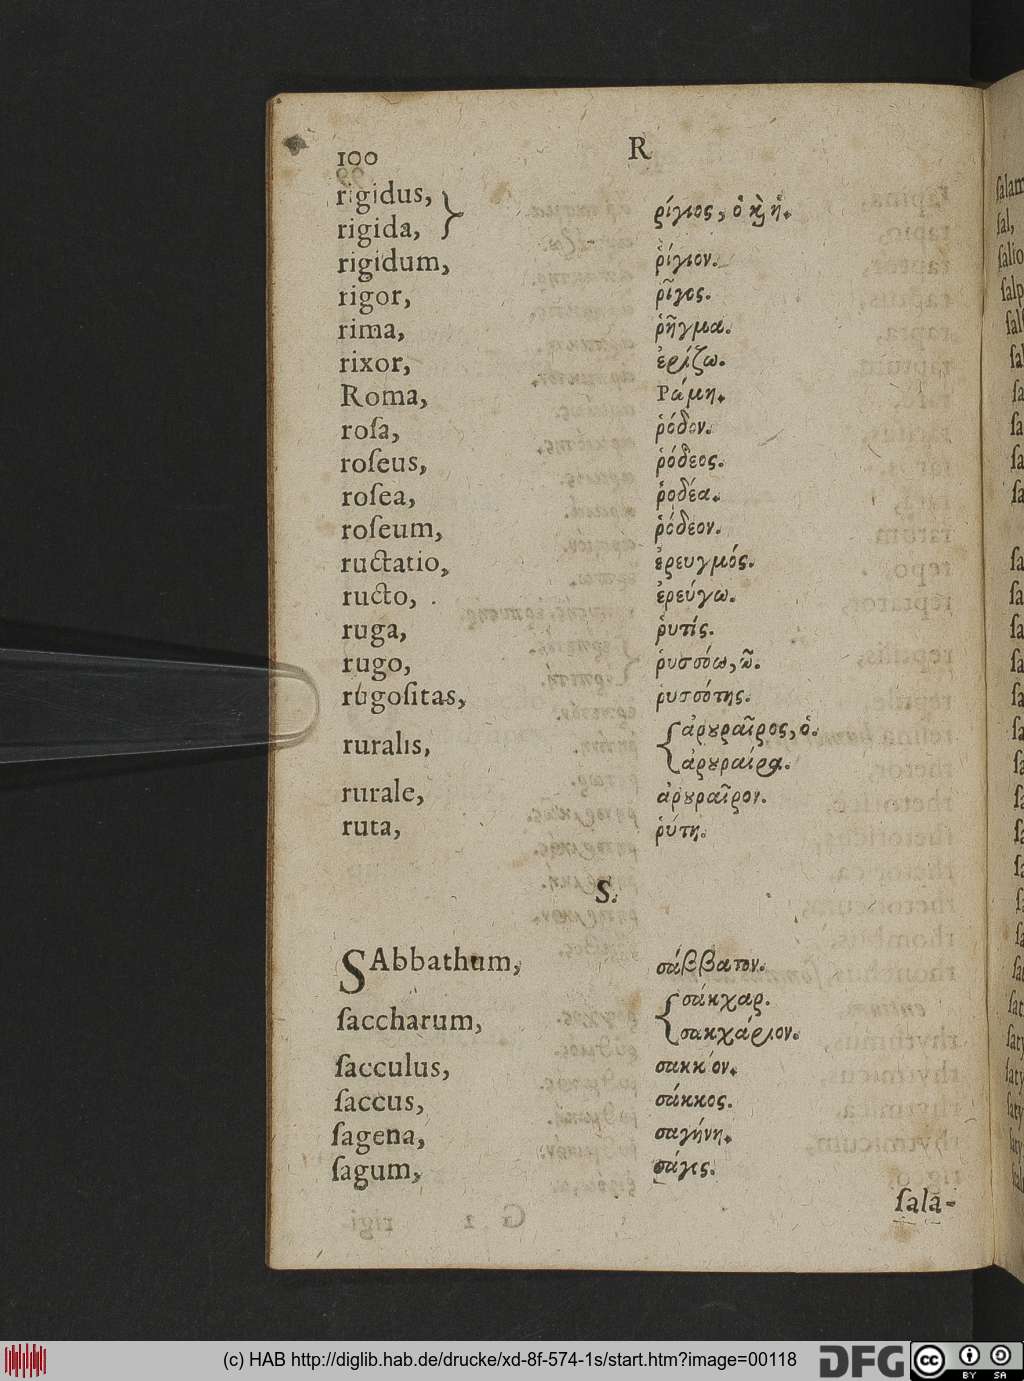 100 R
rigidus, rigida, } ῥίγιος, ὁ κ̀ ἡ.
rigidum, ῥίγιον.
rigor, ῥῖγος.
rima, ῥῆγμα.
rixor, ἐρίζω.
Roma, Ρώμη.
roſa, ῥόδον.
roſeus, ῥόδεος.
roſea, ῥοδέα.
roſeum, ῥόδεον.
ructatio, ἐρευγμός.
ructo, ἐρεύγω.
ruga, ῥυτίς.
rugo, ῥυσσόω, ῶ.
rugoſitas, ῥυσσότης.
ruralis, { ἀρȣραῖρος, ὁ.
ἀρȣραίρα.
rurale, ἀρȣραῖρον.
ruta, ῥύτη.
S.
SAbbathum, σάββατον.
ſaccharum, { σάκχαρ.
σακχάριον.
ſacculus, σακκίον.
ſaccus, σάκκος.
ſagena, σαγήνη.
ſagum, σάγος.
ſala-
ſal,
ſalio
(c) HAB http://diglib.hab.de/drucke/xd-8f-574-1s/start.htm?image=00118
DFG
cc BY SA